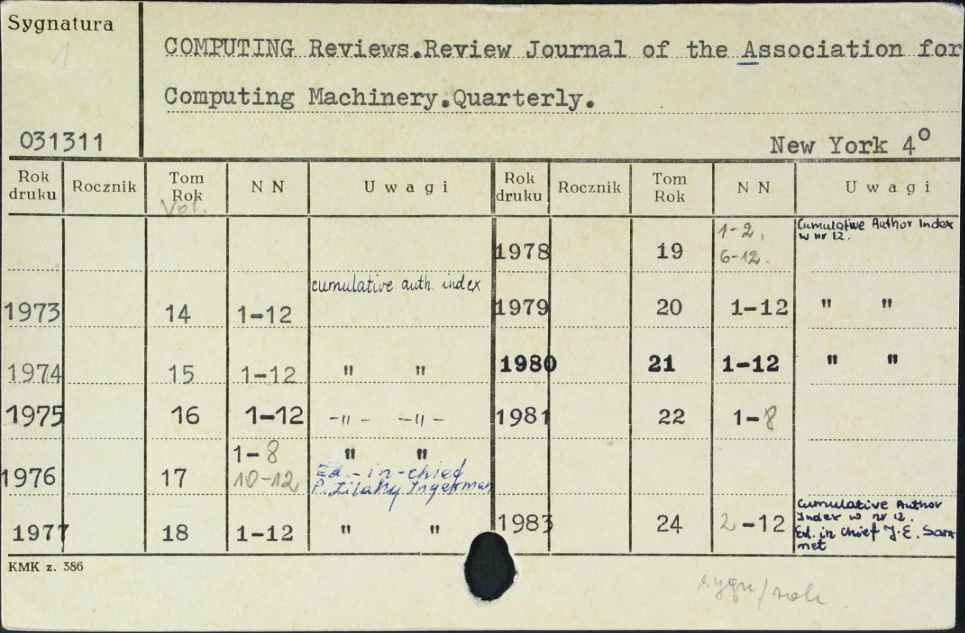 Sygnatura
1
COMPUTING Reviews.Review Journal of the Association for
Computing Machinery.Quarterly.
031311
New York 4°
Rok druku Rocznik Tom Rok N N Uwagi Rok druku Rocznik Tom Rok N N Uwagi
Vol.
1978 19 1-2, 6-12. Cumulative Author Index w nr 12.
cumulative auth. index
1973 14 1-12
1979 20 1-12 " "
1974 15 1-12 " "
1980 21 1-12 " "
1975 16 1-12 -"- -"-
1981 22 1-8
1976 17 1-8 10-12 " "
Ed.-in-chied
P. Zilahy Ingerman
1977 18 1-12 " "
1983 24 2-12 Cumulative Author
Index w nr 12.
Ed. in chief J.E. Sammet
KMK z. 386